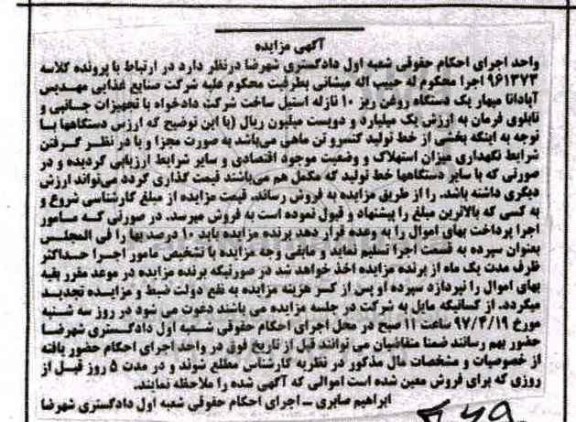 آگهی مزایده
واحد اجرای احکام حقوقی شعبه اول دادگستری شهرضا درنظر دارد در ارتباط با پرونده کلاسه
۹۶۱۳۷۳ اجرا محکوم له حبیب اله میشانی بطرفیت محکوم علیه شرکت صنایع غذایی مهدیس
آپادانا میهار یک دستگاه روغن ریز ۱۰ نازله استیل ساخت شرکت دادخواه با تجهیزات جانبی و
تابلوی فرمان به ارزش یک میلیارد و دویست میلیون ریال (با این توضیح که ارزش دستگاهها با
توجه به اینکه بخشی از خط تولید کنسرو تن ماهی می‌باشد به صورت مجزا و با در نظر گرفتن
شرایط نگهداری میزان استهلاک و وضعیت موجود اقتصادی و سایر شرایط ارزیابی گردیده و در
صورتی که با سایر دستگاهها خط تولید که مکمل هم می‌باشند قیمت گذاری گردد می‌تواند ارزش
دیگری داشته باشد. را از طریق مزایده به فروش رساند. قیمت مزایده از مبلغ کارشناسی شروع و
به کسی که بالاترین مبلغ را پیشنهاد و قبول نموده است به فروش میرسد. در صورتی که مامور
اجرا پرداخت بهای اموال را به وعده قرار دهد برنده مزایده باید ۱۰ درصد بها را فی المجلس
بعنوان سپرده به قسمت اجرا تسلیم نماید و مابقی وجه مزایده با تشخیص مامور اجرا حداکثر
ظرف مدت یک ماه از برنده مزایده اخذ خواهد شد در صورتیکه برنده مزایده در موعد مقرر بقیه
بهای اموال را نپردازد سپرده او پس از کسر هزینه مزایده به نفع دولت ضبط و مزایده تجدید
میگردد. از کسانیکه مایل به شرکت در جلسه مزایده می باشند دعوت می شود در روز سه شنبه
مورخ ۹۷/۴/۱۹ ساعت ۱۱ صبح در محل اجرای احکام حقوقی شعبه اول دادگستری شهرضا
حضور بهم رسانند ضمنا متقاضیان می توانند قبل از تاریخ فوق در واحد اجرای احکام حضور یافته
از خصوصیات و مشخصات مال مذکور در نظریه کارشناس مطلع شوند و در مدت ۵ روز قبل از
روزی که برای فروش معین شده است اموالی که آگهی شده را ملاحظه نمایند.
ابراهیم صابری ــ اجرای احکام حقوقی شعبه اول دادگستری شهرضا